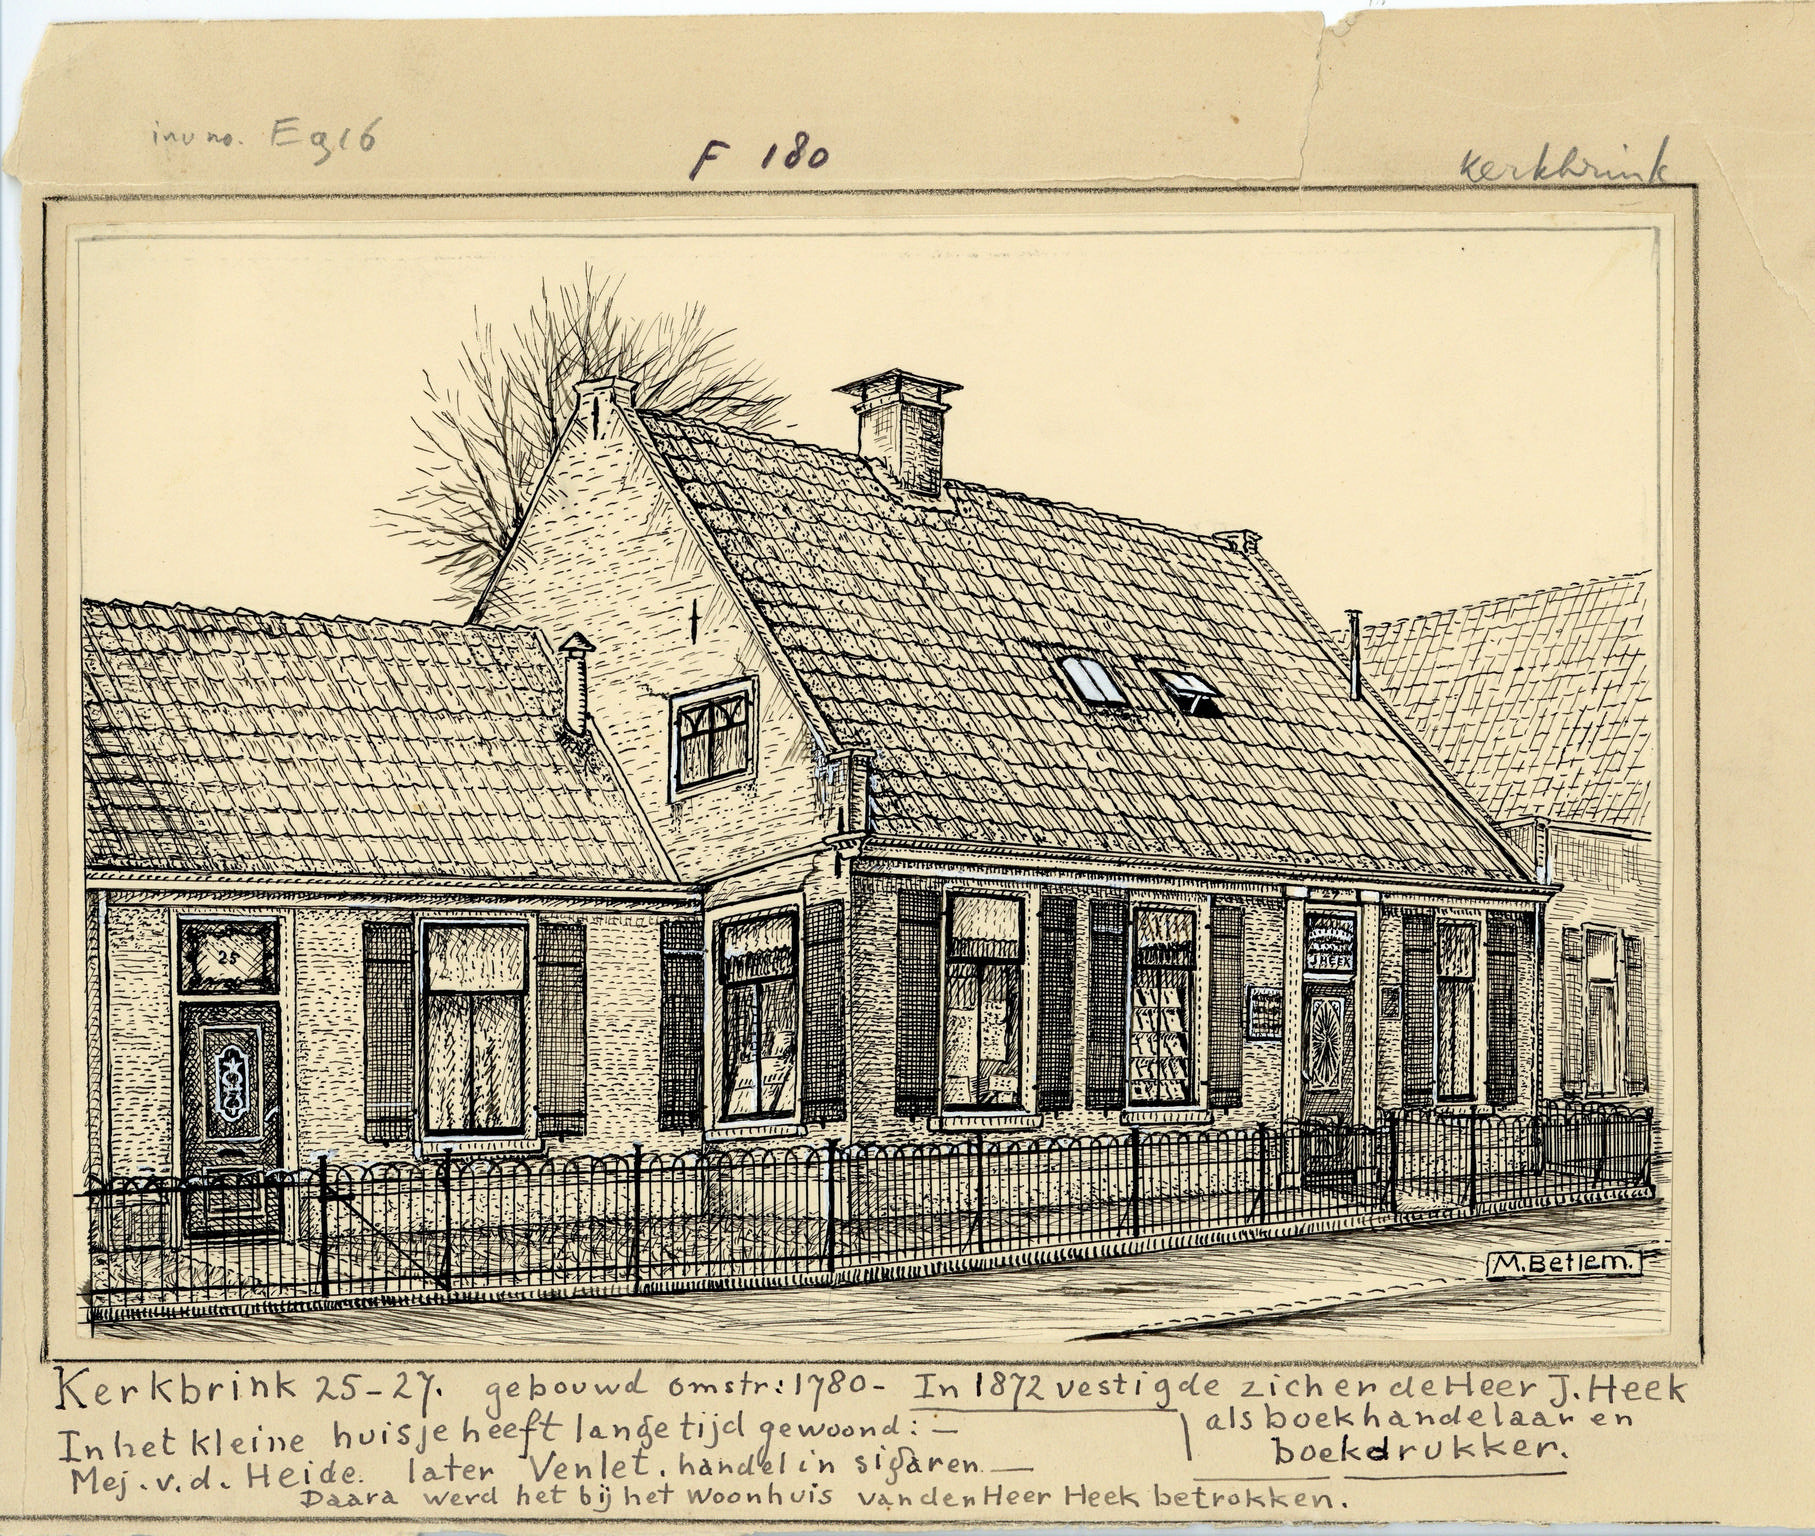 inv no. Eg16
F 180
Kerkbrink
25
27
J. HEEK
M. Betlem.
Kerkbrink 25-27. gebouwd omstr: 1780- In 1872 vestigde zich er de Heer J. Heek
als boekhandelaar en
boekdrukker.
In het kleine huisje heeft lange tijd gewoond: -
Mej. v. d. Heide. later Venlet. handel in sigaren -
Daara werd het bij het Woonhuis van den Heer Heek betrokken.